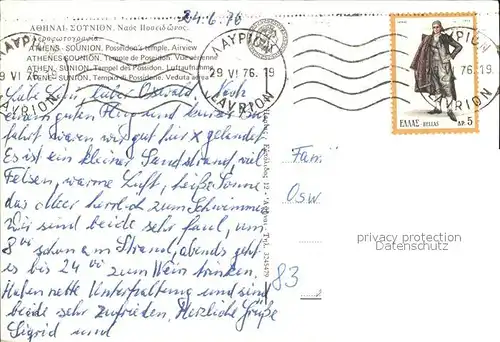 24.6.76
ΑΘΗΝΑΙ. ΣΟΥΝΙΟΝ. Ναὸς Ποσειδῶνος.
Ἀεροφωτογραφία.
ATHENS-SUNION, Poseidon's temple, Airview
ATHENES-SOUNION, Temple de Poseidon. Vue aérienne
ATHEN, SUNION, Tempel des Posseidon. Luftaufnahme
ATENE, SUNION, Tempio di Possidone. Veduta aerea
ΛΑΥΡΙΟΝ
29 VI 76.19
LAVRION
ΕΛΛΑΣ HELLAS ΔΡ. 5
Liebe lieber Oswald, Nach
einem guten Flug und kurzer Bu
fahrt waren wir gut hier gelandet.
Es ist ein kleiner Sandstrand, viel
Felsen, warme Luft, heiße Sonne
das Meer herrlich zum Schwimmen
Wir sind beide sehr faul, um
8 schon am Strand, abends geht
es bis 24 zum Wein trinken.
Haben nette Unterhaltung und sind
beide sehr zufrieden. Herzliche Grüße
Sigrid und
Fam
Osw
83
privacy protection
Datenschutz